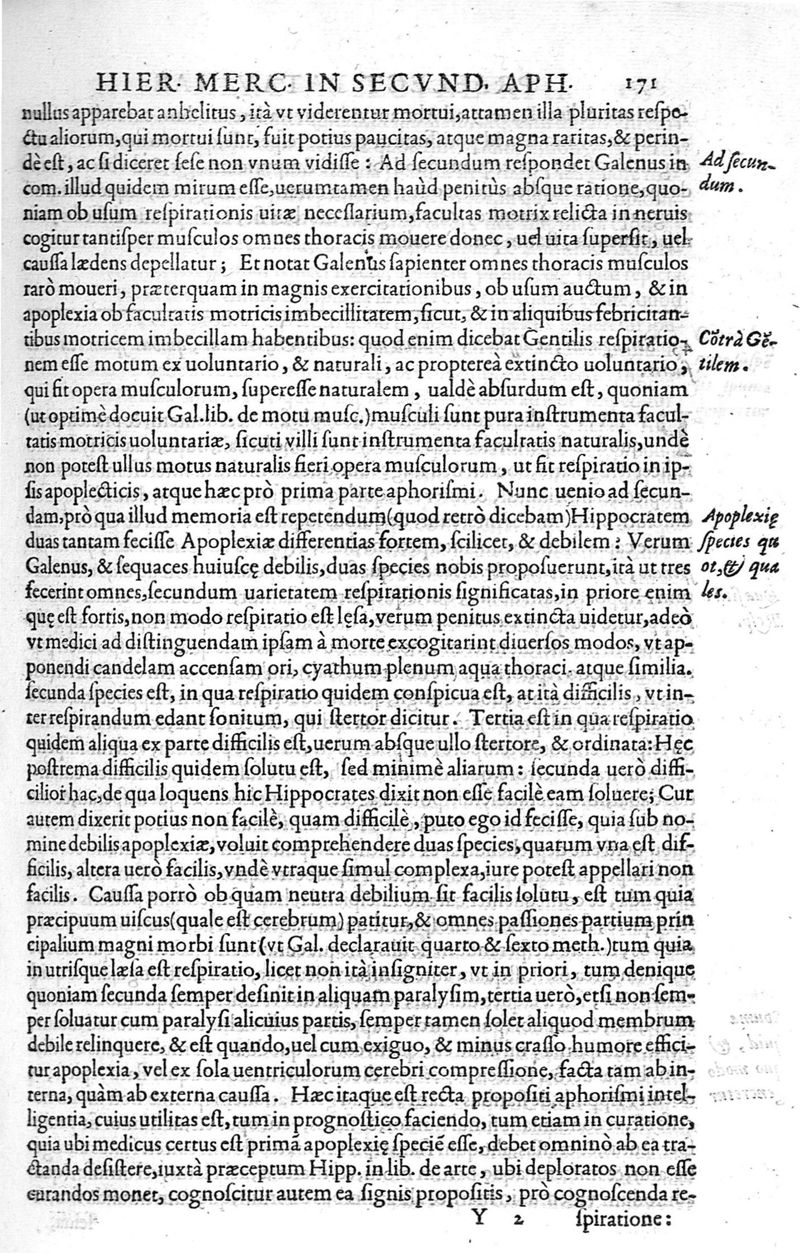 HIER. MERC. IN SECVND. APH. 171
nullus apparebat anhelitus, ità vt viderentur mortui, attamen illa pluritas respe-
ctu aliorum, qui mortui sunt, fuit potius paucitas, atque magna raritas, & perin-
dè est, ac si diceret sese non vnum vidisse: Ad secundum respondet Galenus in
Ad secun-
com. illud quidem mirum esse, uerumtamen haùd penitùs absque ratione, quo-
dum.
niam ob usum respirationis uitæ necessarium, facultas motrix relicta in neruis
cogitur tantisper musculos omnes thoracis mouere donec, uel uita supersit, uel
caussa lædens depellatur; Et notat Galenus sapienter omnes thoracis musculos
rarò moueri, præterquam in magnis exercitationibus, ob usum auctum, & in
apoplexia ob facultatis motricis imbecillitatem, sicut, & in aliquibus febricitan-
tibus motricem imbecillam habentibus: quod enim dicebat Gentilis respiratio-
Cõtrà Gẽ-
nem esse motum ex uoluntario, & naturali, ac proptereà extincto uoluntario,
tilem.
qui fit opera musculorum, superesse naturalem, ualdè absurdum est, quoniam
(ut optimè docuit Gal. lib. de motu musc.) musculi sunt pura instrumenta facul-
tatis motricis uoluntariæ, sicuti villi sunt instrumenta facultatis naturalis, undè
non potest ullus motus naturalis fieri opera musculorum, ut fit respiratio in ip-
sis apoplecticis, atque hæc prò prima parte aphorismi. Nunc uenio ad secun-
dam, prò qua illud memoria est repetendum (quod retrò dicebam) Hippocratem
Apoplexię
duas tantam fecisse Apoplexiæ differentias fortem, scilicet, & debilem: Verum
species qu
Galenus, & sequaces huiuscę debilis, duas species nobis proposuerunt, ità ut tres
ot, & qua
fecerint omnes, secundum uarietatem respirationis significatas, in priore enim
les.
quę est fortis, non modo respiratio est lęsa, verum penitus extincta uidetur, adeò
vt medici ad distinguendam ipsam à morte excogitarint diuersos modos, vt ap-
ponendi candelam accensam ori, cyathum plenum aqua thoraci. atque similia.
secunda species est, in qua respiratio quidem conspicua est, at ità difficilis, vt in-
ter respirandum edant sonitum, qui stertor dicitur. Tertia est in qua respiratio
quidem aliqua ex parte difficilis est, uerum absque ullo stertore, & ordinata: Hęc
postrema difficilis quidem solutu est, sed minimè aliarum: secunda uerò diffi-
cilior hac, de qua loquens hic Hippocrates dixit non esse facilè eam soluere; Cur
autem dixerit potius non facilè, quam difficilè, puto ego id fecisse, quia sub no-
mine debilis apoplexiæ, voluit comprehendere duas species, quarum vna est dif-
ficilis, altera uerò facilis, vndè vtraque simul complexa, iure potest appellari non
facilis. Caussa porrò ob quam neutra debilium sit facilis solutu, est tum quia
præcipuum uiscus (quale est cerebrum) patitur, & omnes passiones partium prin
cipalium magni morbi sunt (vt Gal. declarauit quarto & sexto meth.) tum quia
in utrisque læsa est respiratio, licet non ità insigniter, vt in priori, tum denique
quoniam secunda semper desinit in aliquam paralysim, tertia uerò, etsi non sem-
per soluatur cum paralysi alicuius partis, semper tamen solet aliquod membrum
debile relinquere, & est quando, uel cum exiguo, & minus crasso humore effici-
tur apoplexia, vel ex sola uentriculorum cerebri compressione, facta tam ab in-
terna, quàm ab externa caussa. Hæc itaque est recta propositi aphorismi intel-
ligentia, cuius utilitas est, tum in prognostico faciendo, tum etiam in curatione,
quia ubi medicus certus est primã apoplexię speciẽ esse, debet omninò ab ea tra-
ctanda desistere, iuxtà præceptum Hipp. in lib. de arte, ubi deploratos non esse
curandos monet, cognoscitur autem ea signis propositis, prò cognoscenda re-
Y 2 spiratione: